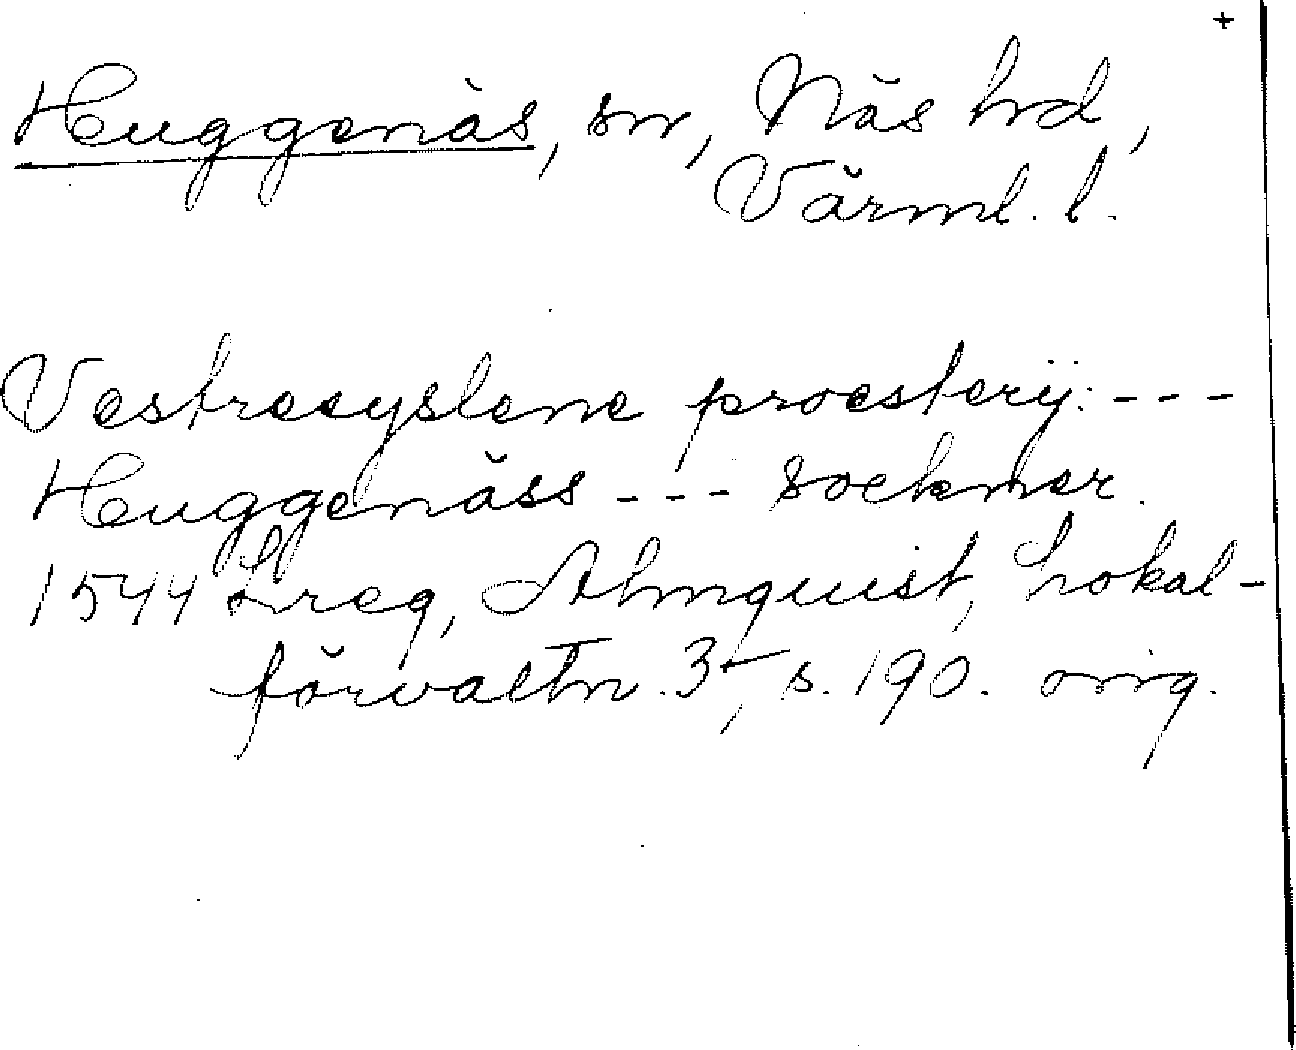 +
Huggenäs, sn, Näs hrd,
Värml. l.
Vestresyslene proesterij: ---
Huggenäss --- sockner.
1544 Lreg, Almquist, Lokal-
förvaltn. 3, s. 190. orig.